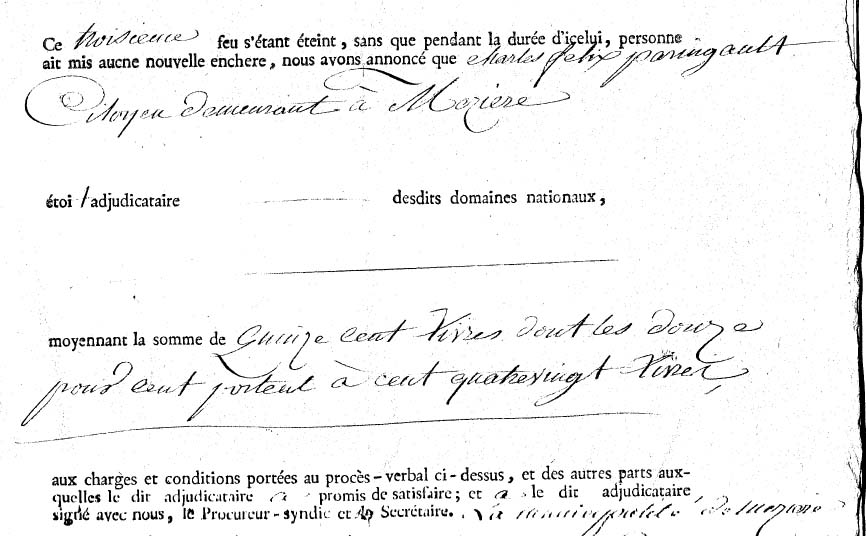 Ce troisieme feu s'étant éteint, sans que pendant la durée d'içelui, personne
ait mis aucne nouvelle enchere, nous avons annoncé que charles felix paringault
Citoyen demeurant à Meziere
étoi l'adjudicataire desdits domaines nationaux,
moyennant la somme de Quinze cent Livres dont les douze
pour cent portent à cent quatrevingt Livres,
aux charges et conditions portées au procès-verbal ci-dessus, et des autres parts aux-
quelles le dit adjudicataire a promis de satisfaire; et a le dit adjudicataire,
signé avec nous, le Procureur-syndic et le Secrétaire. La de meziere